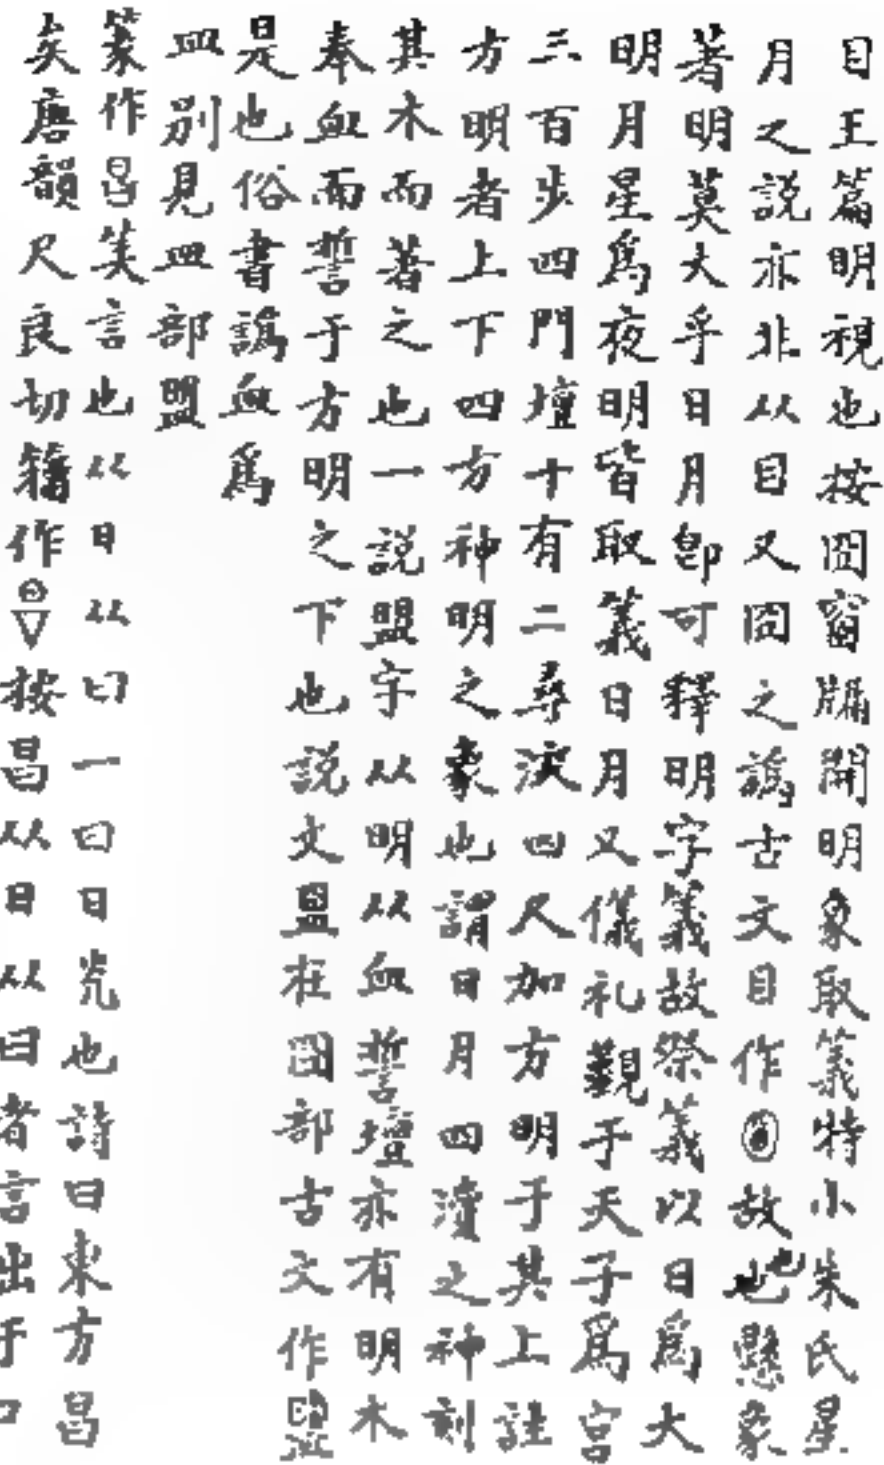 目王篇明視也按囧窗牖開明象取義特小朱氏星
月之説亦非从目又囧之譌古文目作故也懸象
著明莫大乎日月卽可釋明字義故祭義以日爲大
明月星爲夜明皆取義日月又儀礼覲于天子爲宮
三百步四門壇十有二尋深四尺加方明于其上註
方明者上下四方神明之象也謂日月四瀆之神刻
其木而著之也一説盟字从明从血誓壇亦有明木
奉血而誓于方明之下也説文盟在囧部古文作
是也俗書譌血爲
皿別見皿部盟
篆作昌美言也从日从曰一曰日光也詩曰東方昌
矣唐韻尺良切籀作按昌从日从曰者言出于口